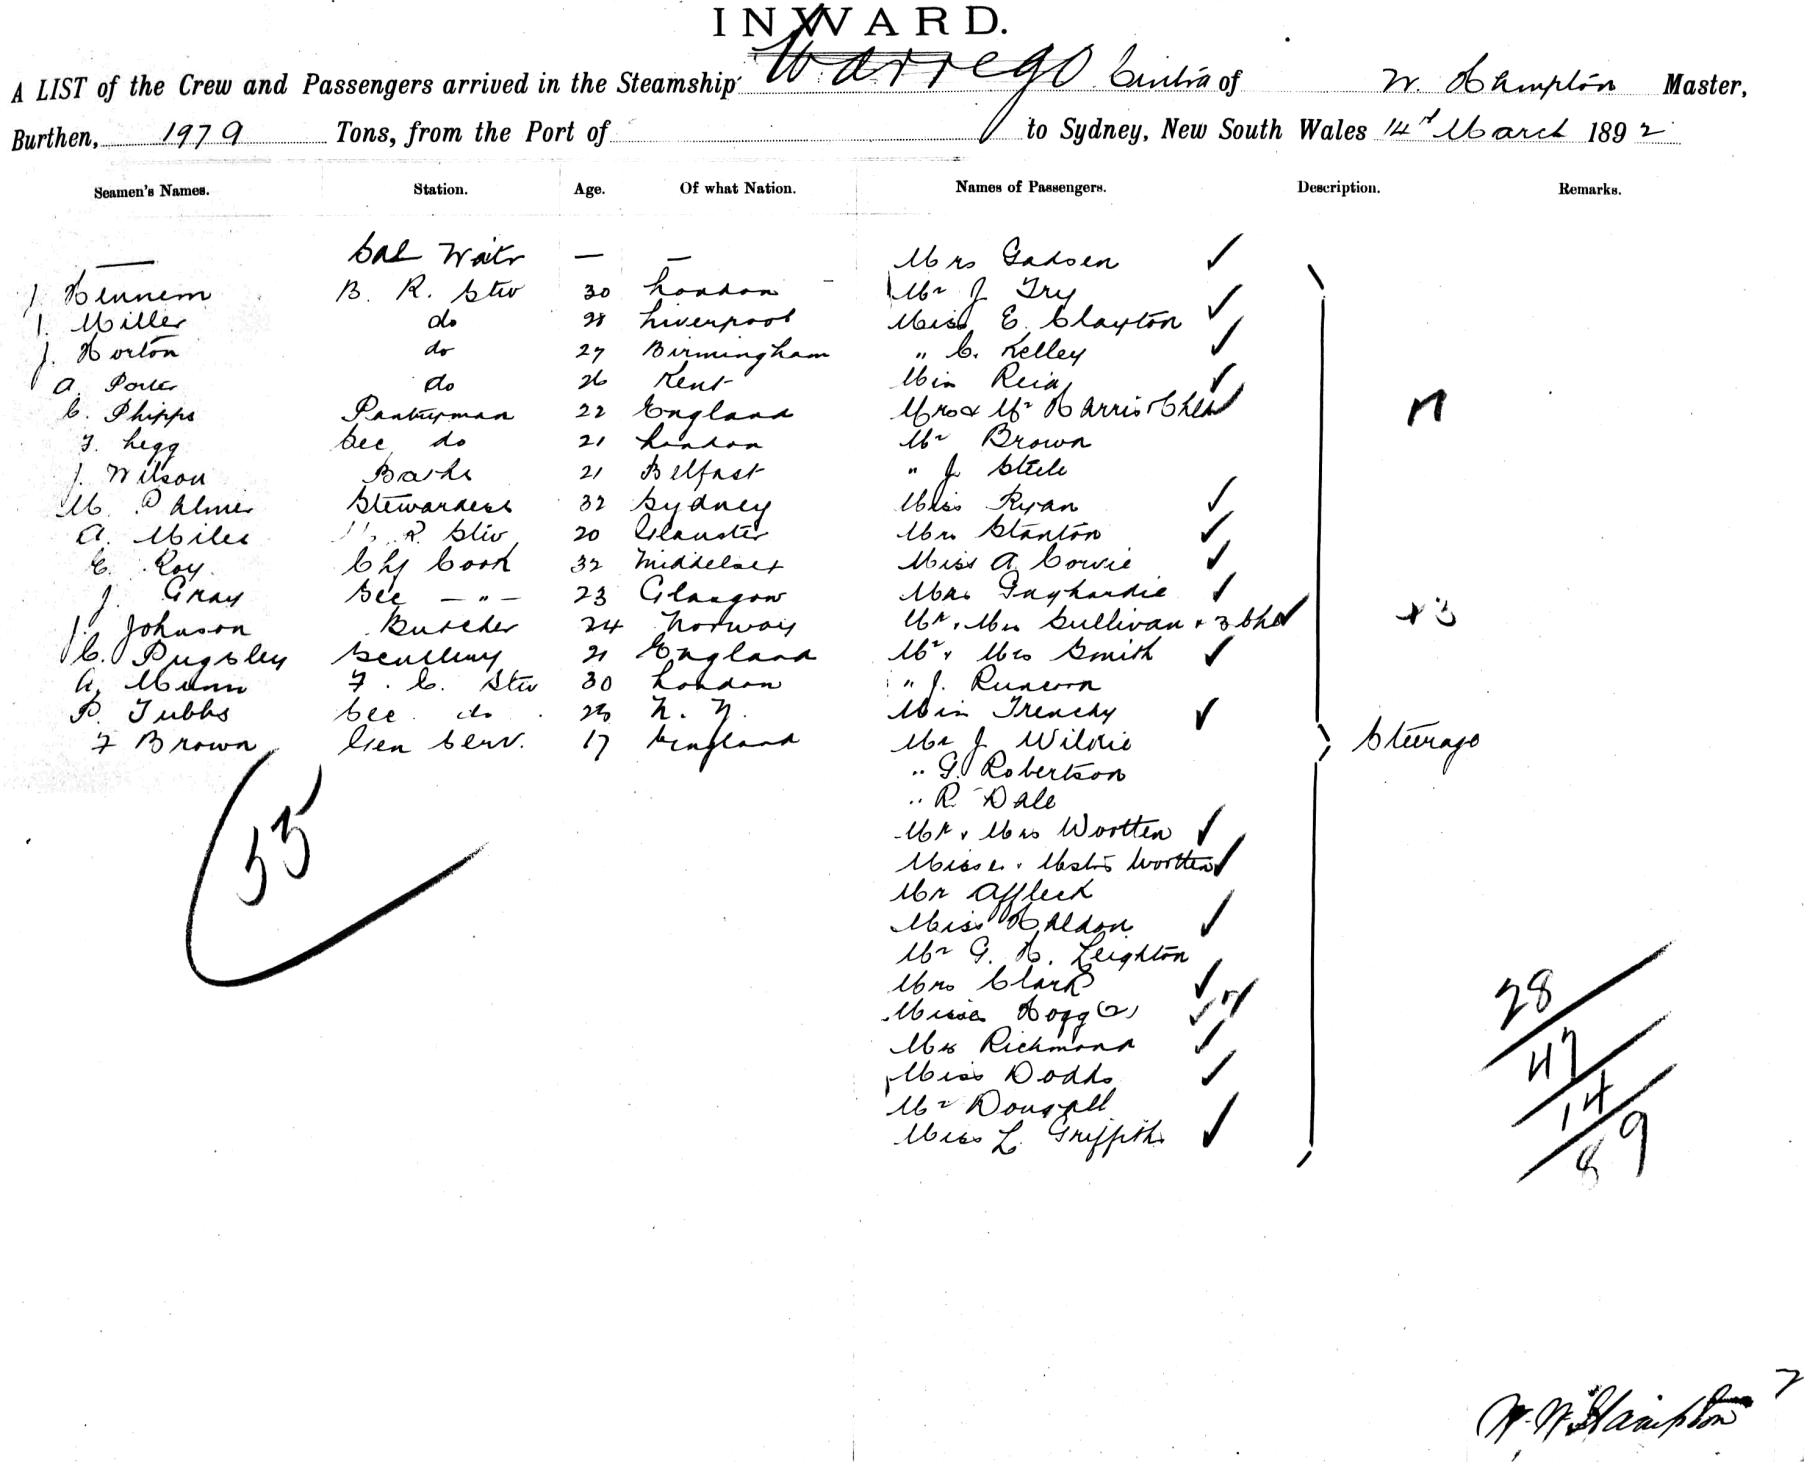 INWARD.
A LIST of the Crew and Passengers arrived in the Steamship Warrego Cintra of W. Hampton Master,
Burthen, 1979 Tons, from the Port of to Sydney, New South Wales 14th March 1892
Seamen's Names. Station. Age. Of what Nation. Names of Passengers. Description. Remarks.
— Sal Waitr — — Mrs Gadsen ✓
J. Hennem B. R. Stw 30 London Mr J Try
J. Miller do 28 Liverpool Miss E. Clayton ✓
J. Horton do 27 Birmingham " C. Kelley ✓
A. Porter do 26 Kent Miss Reid ✓
C. Phipps Pantryman 22 England Mrs & Mr Harris + Chld ✓
F. Legg Sec do 21 London Mr Brown
J. Wilson Baths 21 Belfast " J Steele
M. Palmer Stewardess 32 Sydney Miss Ryan ✓
A. Miles R Stw 20 Gloucster Mrs Stanton ✓
E. Roy Chf Cook 32 Middelsex Miss A Cowie ✓
J. Gray Sec — " — 23 Glasgow Mrs Gayhardie ✓
J. Johnson Butcher 24 Norway Mr & Mrs Sullivan + 3 Chd ✓ + 3
C. Pugsley Scullery 21 England Mr & Mrs Smith ✓
A. Munn F. C. Stw 30 London " J. Runcorn
P. Tubbs Sec do N. Z. Miss Trenchy ✓
F Brown Gen Serv. 17 England Mr J Wildie Steerage
" G. Robertson
" R. Dale
55
Mr & Mrs Wootten ✓
Misses & Mstrs Wootten ✓
Mr Affleck
Miss Haldon ✓
Mr G. H. Leighton
Mrs Clark ✓
Misses Hogg (2) ✓
Mrs Richmond ✓
Miss Dodds ✓
Mr Dougall
Miss L. Griffiths ✓
28
47
14
89
W. W. Hampton